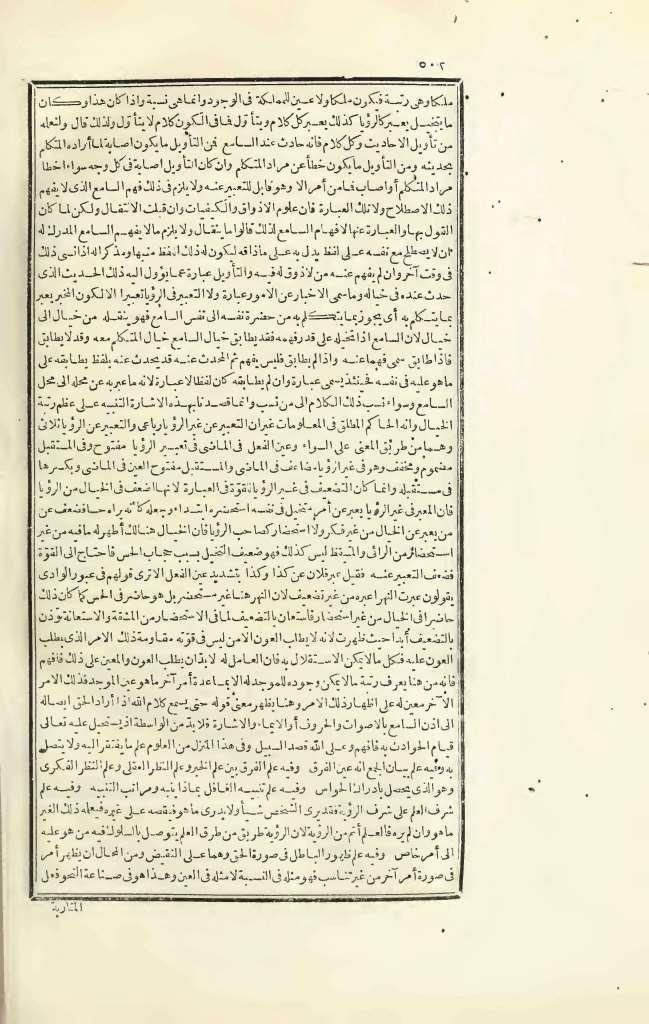 ٥٠٢
ملكا وهى رتبة فيكون ملكا ولا عين للمملكة فى الوجود وانما هى نسبة واذا كان هذا وكان
ما يتخيل يعبر كالرؤيا كذلك يعبر كل كلام ويتأول فما فى الكون كلام لا يتأول ولذلك قال ولنعلمه
من تأويل الاحاديث وكل كلام فانه حادث عند السامع فمن التأويل ما يكون اصابة لما أراده المتكلم
بحديثه ومن التأويل ما يكون خطأ عن مراد المتكلم وان كان التأويل اصابة فى كل وجه سواء اخطا
مراد المتكلم أو اصاب فما من أمر الا وهو قابل للتعبير عنه ولا يلزم فى ذلك فهم السامع الذى لا يفهم
ذلك الاصطلاح ولا تلك العبارة فان علوم الاذواق والكيفيات وان قبلت الانتقال ولكن لما كان
القول بها والعبارة عنها لافهام السامع لذلك قالوا ما ينقال ولا يلزم ما لا يفهم السامع المدرك له
ان لا يصطلح مع نفسه على لفظ يدل به على ما ذاقه ليكون له ذلك اللفظ منبها ومذكرا له اذا نسى ذلك
فى وقت آخر وان لم يفهم عنه من لا ذوق له فيه والتأويل عبارة عما يؤول اليه ذلك الحديث الذى
حدث عنده فى خياله وما سمى الاخبار عن الامور عبارة ولا التعبير فى الرؤيا تعبيرا الا لكون المخبر يعبر
بما يتكلم به أى يجوز بما يتكلم به من حضرة نفسه الى نفس السامع فهو ينقله من خيال الى
خيال لان السامع اذا تخيله على قدر فهمه فقد يطابق خيال السامع خيال المتكلم معه وقد لا يطابق
فاذا طابق سمى فهما عنه واذا لم يطابق فليس بفهم ثم المحدث عنه قد يحدث عنه بلفظ يطابقه على
ما هو عليه فى نفسه فحينئذ يسمى عبارة وان لم يطابقه كان لفظا لا عبارة لانه ما عبر به عن محله الى محل
السامع وسواء نسب ذلك الكلام الى من نسب وانما قصدنا بهذه الاشارة التنبيه على عظم رتبة
الخيال وانه الحاكم المطلق فى المعلومات غير ان التعبير عن غير الرؤيا رباعى والتعبير عن الرؤيا ثلاثى
وهما من طريق المعنى على السواء وعين الفعل فى الماضى فى تعبير الرؤيا مفتوح وفى المستقبل
مضموم ومخفف وهو فى غير الرؤيا مضاعف فى الماضى والمستقبل مفتوح العين فى الماضى وبكسرها
فى مستقبله وانما كان التضعيف فى غير الرؤيا للقوة فى العبارة لانها اضعف فى الخيال من الرؤيا
فان المعبر فى غير الرؤيا يعبر عن أمر متخيل فى نفسه استحضره ابتداء وجعله كأنه يراه حسا فضعف عن
من يعبر عن الخيال من غير فكر ولا استحضار كصاحب الرؤيا فان الخيال هنالك أظهر له ما فيه من غير
استحضار من الرائى والمتيقظ ليس كذلك فهو ضعيف التخيل بسبب حجاب الحس فاحتاج الى القوة
فضعف التعبير عنه فقيل عبر فلان عن كذا وكذا بتشديد عين الفعل الا ترى قولهم فى عبور الوادى
يقولون عبرت النهر اعبره من غير تضعيف لان النهر هنا غير مستحضر بل هو حاضر فى الحس كما كان ذلك
حاضرا فى الخيال من غير استحضار فاستعان بالتضعيف لما فى الاستحضار من المشقة والاستعانة تؤذن
بالتضعيف أبدا حيث ظهرت لانه لا يطلب العون الا من ليس فى قوته مقاومة ذلك الامر الذى يطلب
العون عليه فكل ما لا يمكن الاستقلال به فان العامل له لا بد ان يطلب العون والمعين على ذلك فافهم
فانه من هنا يعرف رتبة ما لا يمكن وجوده للموجد له الا بمساعدة أمر آخر ما هو عين الموجد فذلك الامر
الآخر معين له على اظهار ذلك الامر وهنا يظهر معنى قوله حتى يسمع كلام الله اذا أراد الحق ايصاله
الى اذن السامع بالاصوات والحروف أو الايماء والاشارة فلا بد من الواسطة اذ يستحيل عليه تعالى
قيام الحوادث به فافهم وعلى الله قصد السبيل وفى هذا المنزل من العلوم علم ما يفتقر اليه ولا يتصل
به وفيه علم بيان الجمع انه عين الفرق وفيه علم الفرق بين علم الخبر وعلم النظر العقلى وعلم النظر الفكرى
وهو الذى يحصل بادراك الحواس وفيه علم تنبيه الغافل بماذا ينبه ومراتب التنبيه وفيه علم
شرف العلم على شرف الرؤية فقد يرى الشخص شيأ ولا يدرى ما هو فيقصه على غيره فيعلمه ذلك الغير
ما هو وان لم يره فالعلم أتم من الرؤية لان الرؤية طريق من طرق العلم يتوصل بالسلوك فيه من هو عليه
الى أمر خاص وفيه علم ظهور الباطل فى صورة الحق وهما على النقيض ومن المحال ان يظهر أمر
فى صورة أمر آخر من غير تناسب فهو مثله فى النسبة لا مثله فى العين وهذا هو فى صناعة النحو فعل
المقاربة